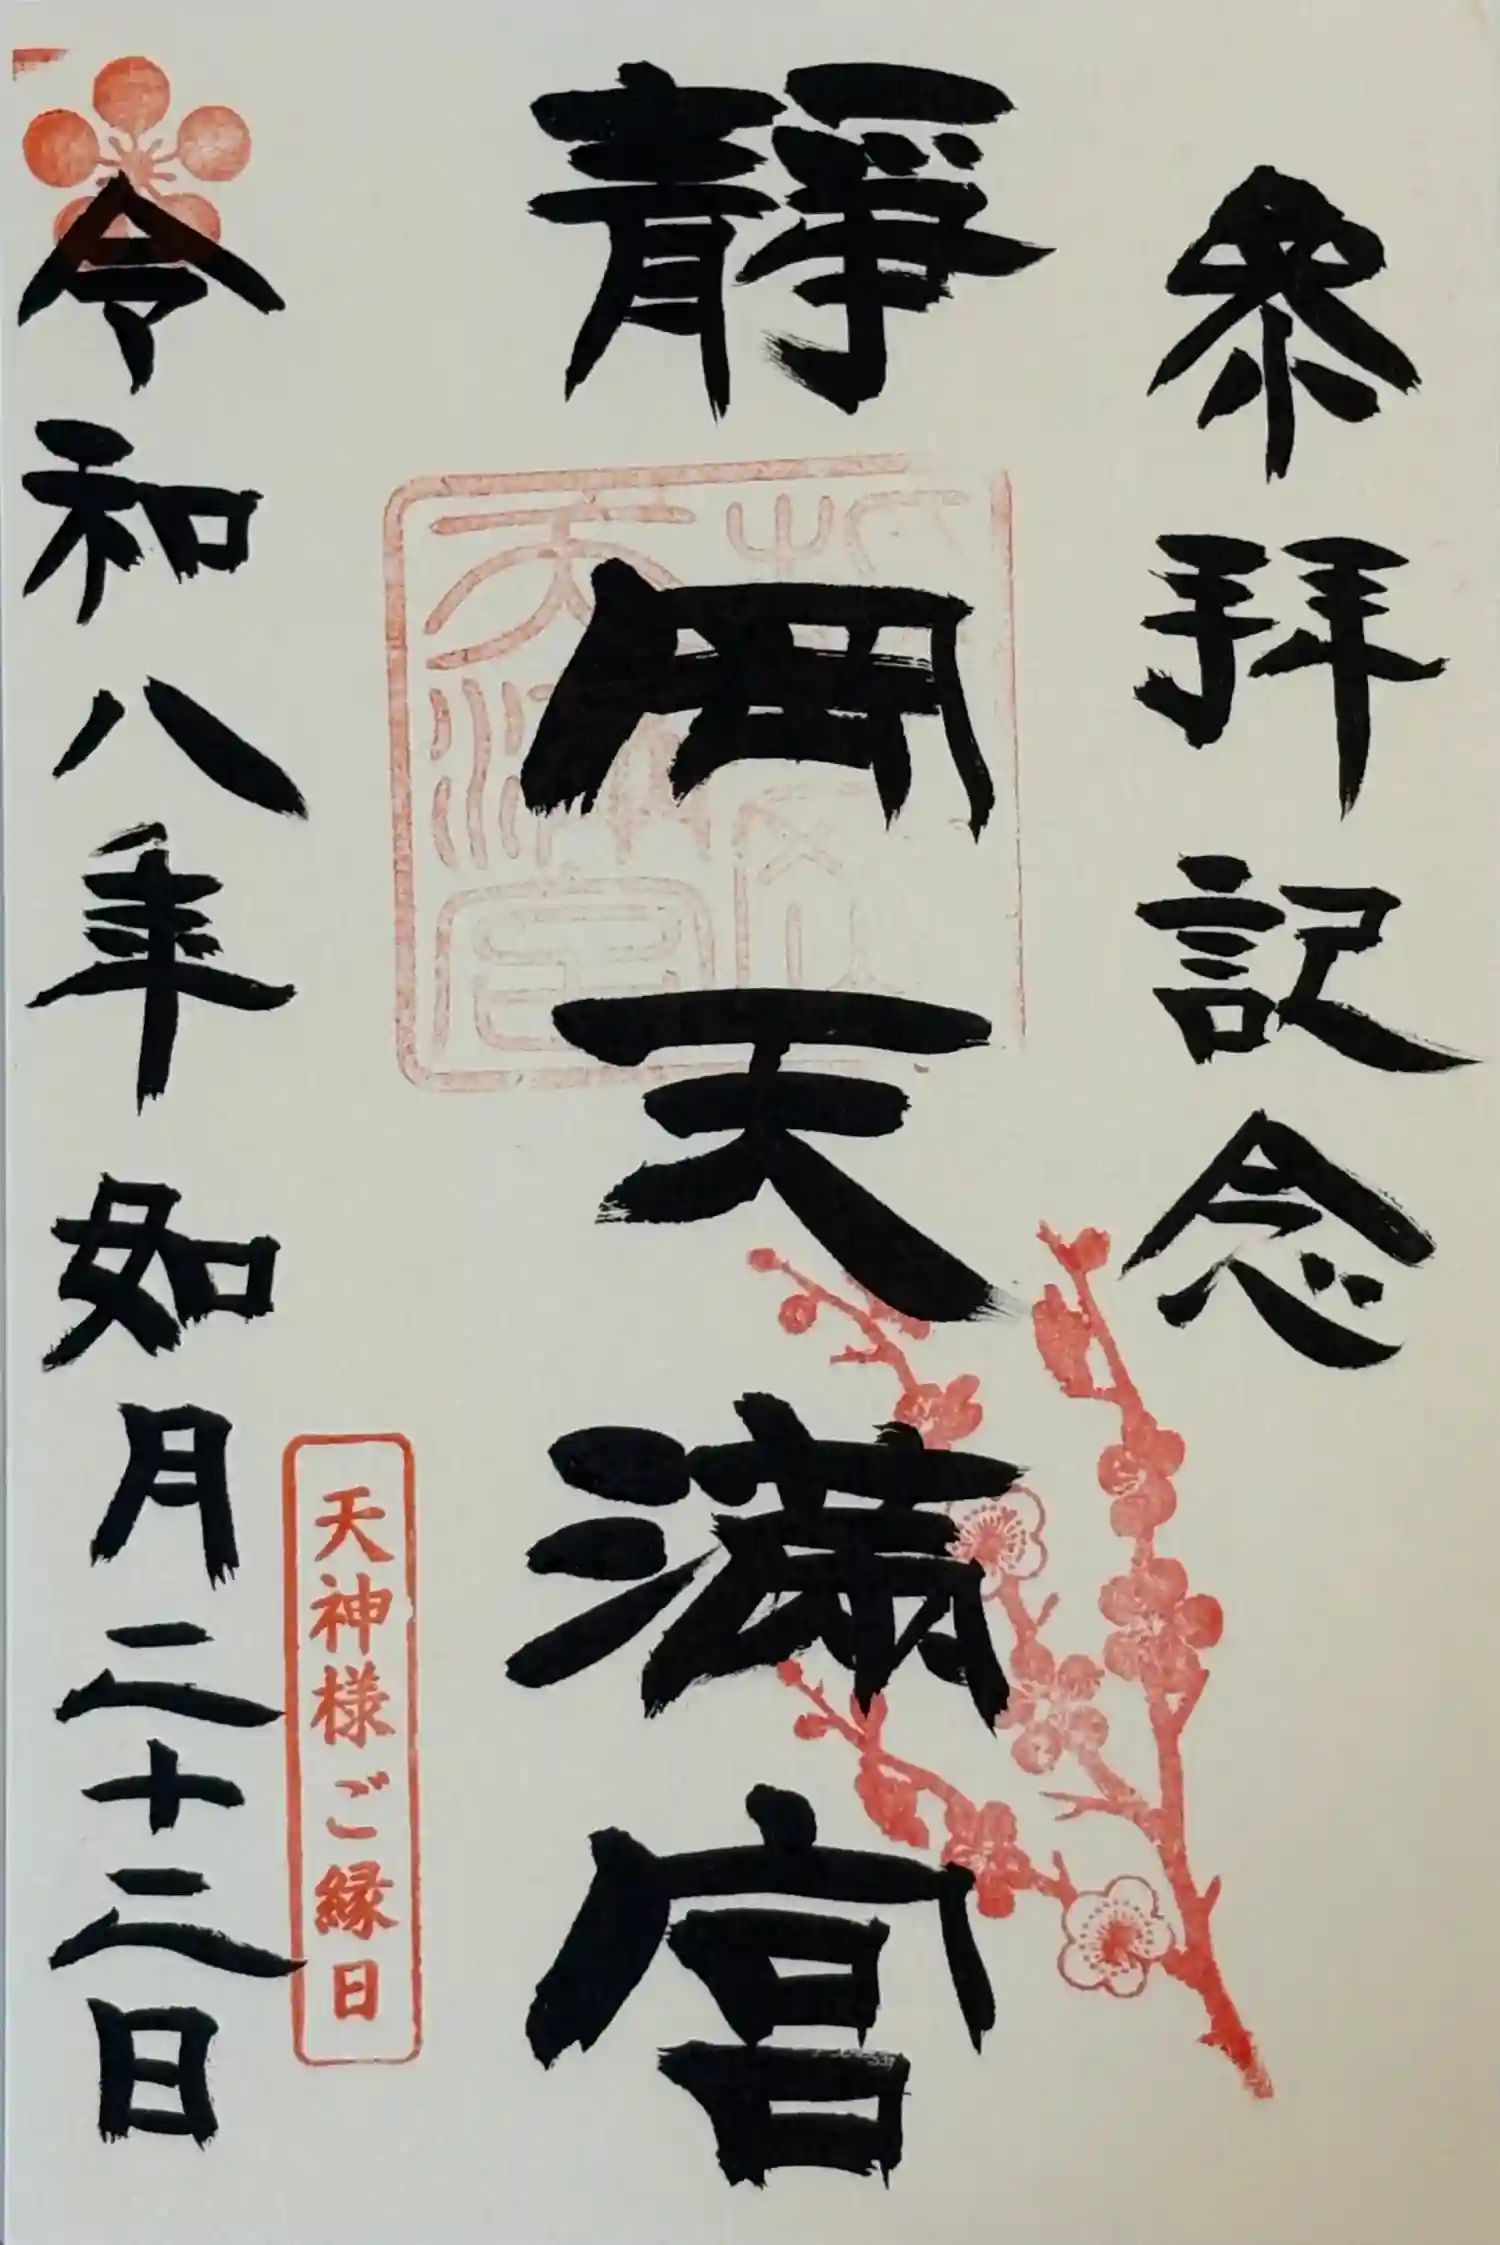 参拝記念
靜岡天満宮
天満宮
天神様ご縁日
令和八年如月二十二日